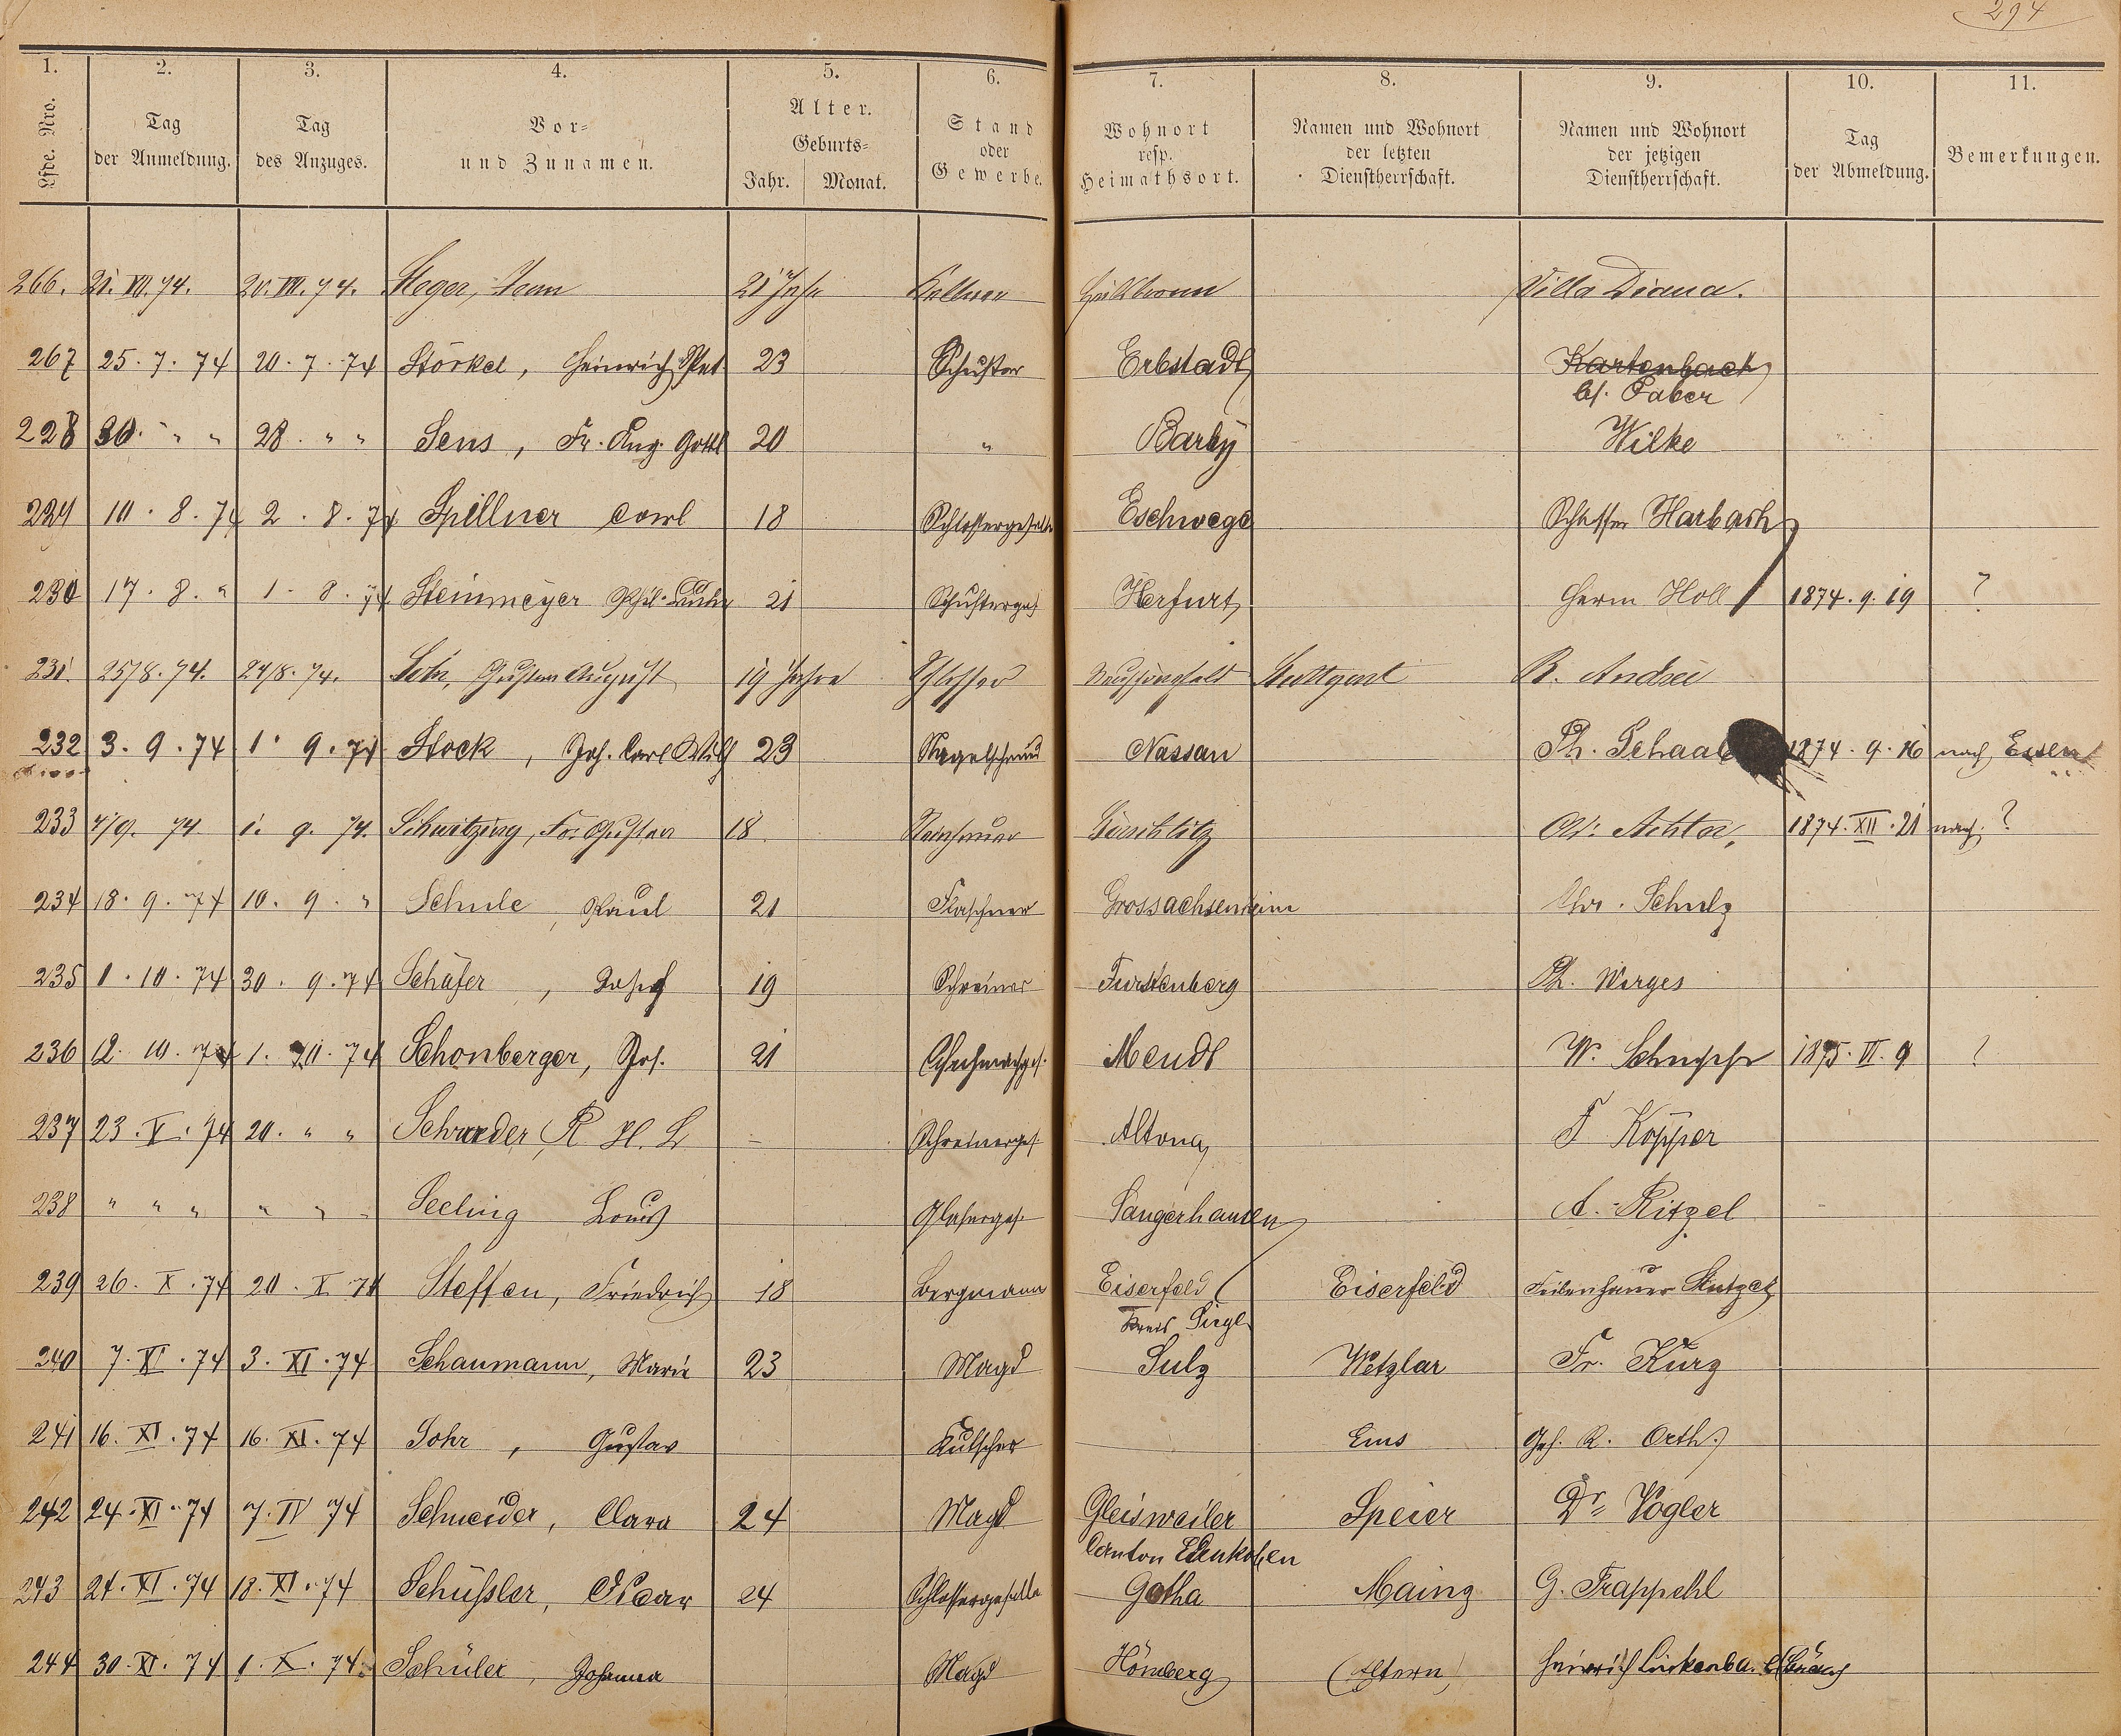 294
1. 2. 3. 4. 5. 6. 7. 8. 9. 10. 11.
Lfde. Nro. Tag der Anmeldung. Tag des Anzuges. Vor= und Zunamen. Alter. Geburts= Jahr. Monat. Stand oder Gewerbe. Wohnort resp. Heimathsort. Namen und Wohnort der letzten Dienstherrschaft. Namen und Wohnort der jetzigen Dienstherrschaft. Tag der Abmeldung. Bemerkungen.
266. 21. VII. 74. 20. VII. 74. Steger, Jean 21 Jahr Kellner Heilbronn Villa Diana.
267 25. 7. 74 20. 7. 74 Störkel, Heinrich Pet. 23 Schuster Erbstadt Kartenbach
bf. Faber
228 30. " " 28. " " Sens, Fr. Aug. Gottl 20 " Barby Wilke
229 10. 8. 74 2. 8. 74 Spillner Carl 18 Schlossergeselle Eschwege Schlosser Harbach
230 17. 8. " 1. 8. 74 Steinmeyer Phil. 21 Schusterges Herfurt Herm Holl 1874. 9. 19 ?
231. 25/8. 74. 24/8. 74. Gustav August 19 Jahre Schlosser Stuttgart R. Andrée
232 3. 9. 74 1. 9. 74 Stock, Joh. Carl Wilh 23 Nagelschmid Nassau Ph. Schaal 1874. 9. 16 nach Essen
233 4/9. 74 1. 9. 74. Schwitzing, Fr. Gustav 18 Achter, 1874. XII. 21 nach ?
234 18. 9. 74 10. 9. " Schule, Paul 21 Flaschner Grossachsenheim Chr. Schulz
235 1. 10. 74 30. 9. 74 Schäfer, Josef 19 Schreiner Furstenberg Ph. Wirges
236 12. 10. 74 1. 10. 74 Schonberger, Jos. 21 Schuhmachges. Mendt W. 1875. VI. 9 ?
237 23. X. 74 20. " " Schrœder, R H. L - Schreinerges Altona F Köpper
238 " " " " " " Seeling Louis Glaserges. Sangerhausen A. Ritzel
239 26. X. 74 20. X 74 Steffen, Friedrich 18 Bergmann Eiserfeld Eiserfeld Feilenhauer Stutzel
Kreis Siegl
240 7. XI. 74 3. XI. 74 Schaumann, Marie 23 Magd Sulz Wetzlar Fr. Kurz
241 16. XI. 74 16. XI. 74 Sohr, Gustav Kutscher Ems Geh. R. Orth.
242 24. XI. 74 7. IV 74 Schneider, Clara 24 Magd Gleisweiler Speier Dr Vogler
Canton Edenkoben
243 24. XI. 74 18. XI. 74 Schüssler, Oscar 24 Schlossergeselle Gotha Mainz G. Trappehl
244 30. XI. 74 1. X. 74. Schüler, Johanna Magd Hömberg (Eltern) Heinrich